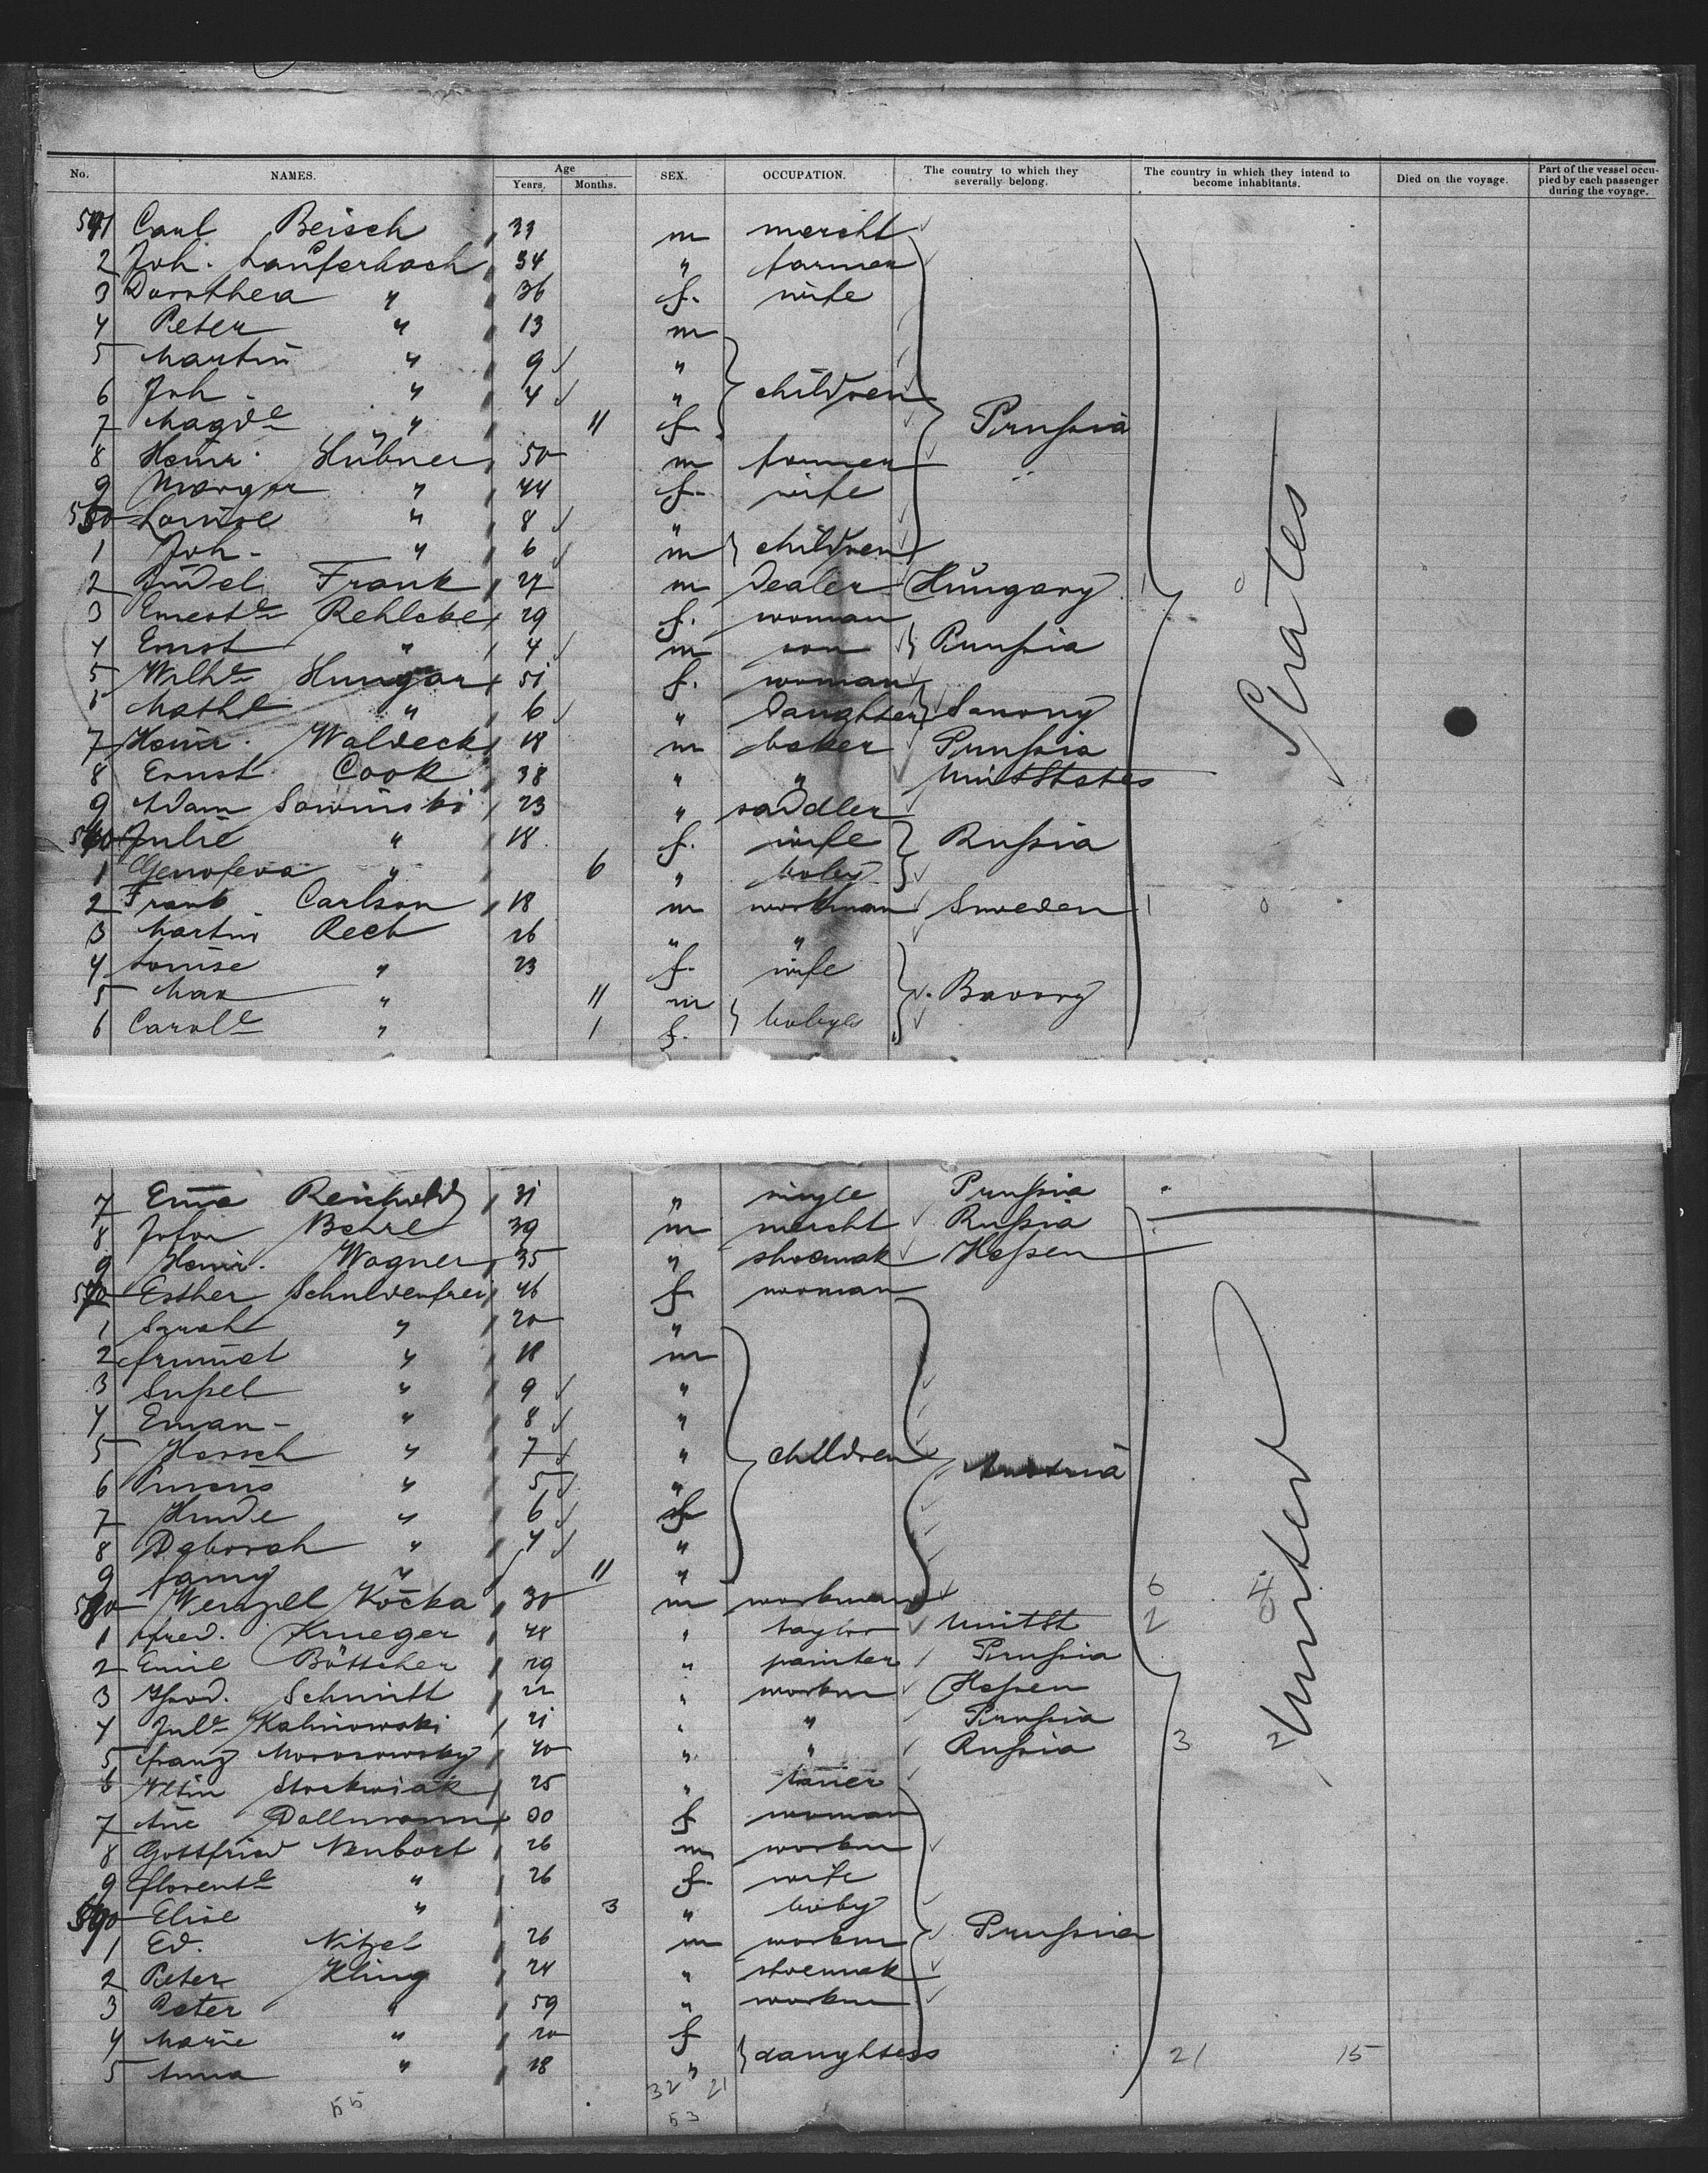 No. NAMES. Age Years. Months. SEX. OCCUPATION. The country to which they severally belong. The country in which they intend to become inhabitants. Died on the voyage. Part of the vessel occupied by each passenger during the voyage.
541 Carl Beisch 33 m mercht
2 Joh. Lauferbach 34 " farmer
3 Dorothea " 36 f. wife
4 Peter " 13 m
5 Martin " 9 "
6 Joh. " 4 " children
7 Magde " 11 f. Prussia
8 Heinr. Hübner 50 m farmer
9 Margar " 44 f. wife
550 Louise " 8 "
1 Joh. " 6 m children
2 Frank 27 m Dealer Hungary
3 Erneste Rehlcke 29 f. woman
4 Ernst " 4 m son Prussia
5 Wilhe Hungar 51 f. woman
6 Mathe " 6 " Daughter Saxony
7 Heinr. Waldeck 18 m baker Prussia
8 Ernst Cook 38 " " Unit States
9 Adam Sawinski 23 " saddler
560 Julie " 18 f. wife Russia
1 Genofeva " 6 " baby
2 Frank Carlson 18 m workman Sweden
3 Martin Rech 26 " "
4 Louise " 23 f. wife
5 Max " 11 m Bavary
6 Carole " 1 f. babyes
States
7 Emma Reichwald 31 " single Prussia
8 Behrl 39 m mercht Russia
9 Heinr. Wagner 35 " shoemak Hessen
570 Esther Schuldenfrei 46 f. woman
1 Sarah " 20 "
2 " 18 m
3 Sussel " 9 "
4 Eman- " 8 "
5 Hersch " 7 " children Austria
6 Pincus " 5 "
7 Hinde " 6 f
8 Deborah " 4 "
9 Fanny " 11 "
580 Wenzel Kocka 30 m workman
1 Fred. Krueger 48 " taylor Unit St
2 Emil Böttcher 29 " painter Prussia
3 Schmitt 22 " workm Hessen
4 Jule Kalinowski 21 " " Prussia
5 Franz Morosowsky 40 " " Russia
6 25 " taner
7 Ane Dallmann 30 f woman
8 Gottfried 26 m workm
9 Florente " 26 f. wife
590 Elise " 3 " baby
1 Ed. Nitzel 26 m workm Prussia
2 Peter Kling 24 " shoemak
3 Peter " 59 " workm
4 Marie " 20 f
5 Anna " 18 " daughters
United
6 4
2 0
3 2
21 15
55 32 21
53